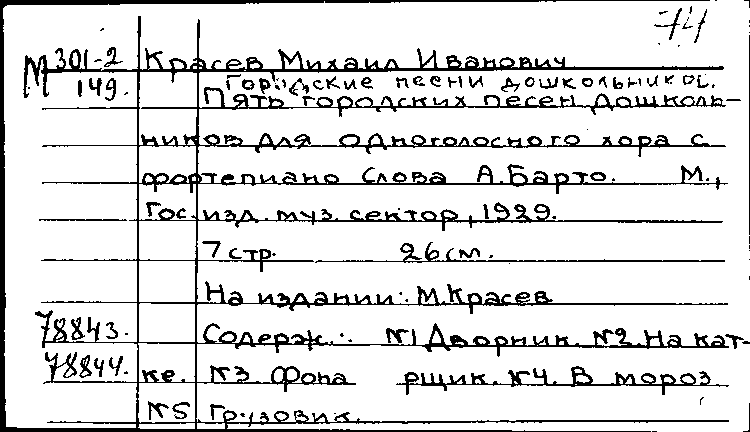 74
М 301-2 Красев Михаил Иванович
149. Городские песни дошкольников.
Пять городских песен дошколь-
ников для одноголосного хора с
фортепиано Слова А.Барто. М.,
Гос. изд. муз. сектор, 1929.
7 стр. 26 см.
На издании: М.Красев
78843. Содерж.: №1 Дворник. №2. На кат-
78844. ке. №3 Фона рщик. №4. В мороз
№5 Грузовик.